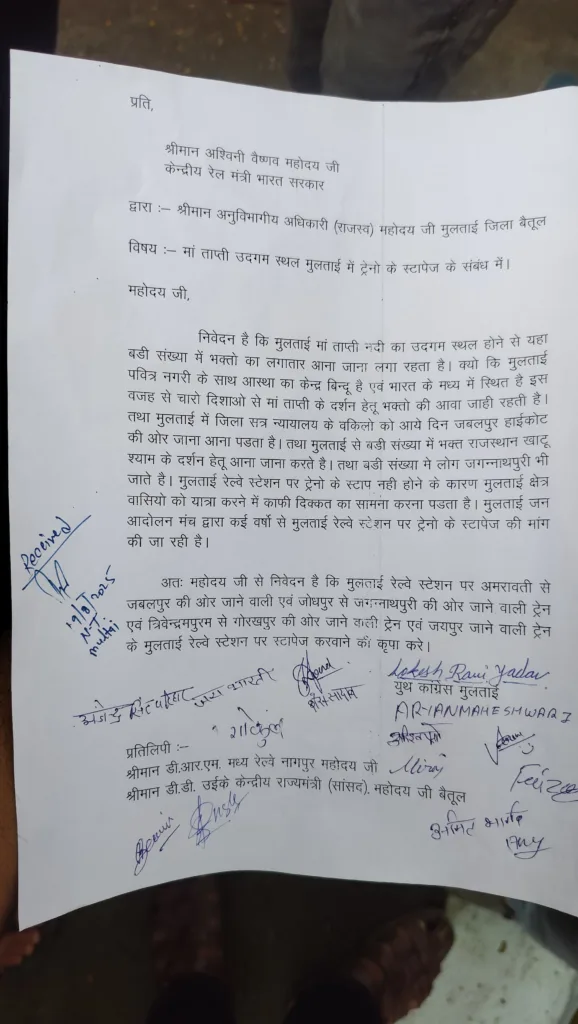 प्रति,
श्रीमान अश्विनी वैष्णव महोदय जी
केन्द्रीय रेल मंत्री भारत सरकार
द्वारा :– श्रीमान अनुविभागीय अधिकारी (राजस्व) महोदय जी मुलताई जिला बैतूल
विषय :– मां ताप्ती उदगम स्थल मुलताई में ट्रेनो के स्टापेज के संबंध में।
महोदय जी,
निवेदन है कि मुलताई मां ताप्ती नदी का उदगम स्थल होने से यहा
बडी संख्या में भक्तो का लगातार आना जाना लगा रहता है। क्यो कि मुलताई
पवित्र नगरी के साथ आस्था का केन्द्र बिन्दू है एवं भारत के मध्य में स्थित है इस
वजह से चारो दिशाओ से मां ताप्ती के दर्शन हेतू भक्तो की आवा जाही रहती है।
तथा मुलताई में जिला सत्र न्यायालय के वकिलो को आये दिन जबलपुर हाईकोट
की ओर जाना आना पडता है। तथा मुलताई से बडी संख्या में भक्त राजस्थान खाटू
श्याम के दर्शन हेतू आना जाना करते है। तथा बडी संख्या मे लोग जगन्नाथपुरी भी
जाते है। मुलताई रेल्वे स्टेशन पर ट्रेनो के स्टाप नही होने के कारण मुलताई क्षेत्र
वासियो को यात्रा करने में काफी दिक्कत का सामना करना पडता है। मुलताई जन
आदोलन मंच द्वारा कई वर्षो से मुलताई रेल्वे स्टेशन पर ट्रेनो के स्टापेज की मांग
की जा रही है।
Received
19/8/2025
N-T
multai
अतः महोदय जी से निवेदन है कि मुलताई रेल्वे स्टेशन पर अमरावती से
जबलपुर की ओर जाने वाली एवं जोधपुर से जगन्नाथपुरी की ओर जाने वाली ट्रेन
एवं त्रिवेन्द्रमपुरम से गोरखपुर की ओर जाने वाली ट्रेन एवं जयपुर जाने वाली ट्रेन
के मुलताई रेल्वे स्टेशन पर स्टापेज करवाने की कृपा करे।
Lokesh Ravi Yadav
यूथ कांग्रेस मुलताई
ARYANMAHESHWARI
प्रतिलिपी :–
श्रीमान डी.आर.एम. मध्य रेल्वे नागपुर महोदय जी
श्रीमान डी.डी. उईके केन्द्रीय राज्यमंत्री (सांसद), महोदय जी बैतूल